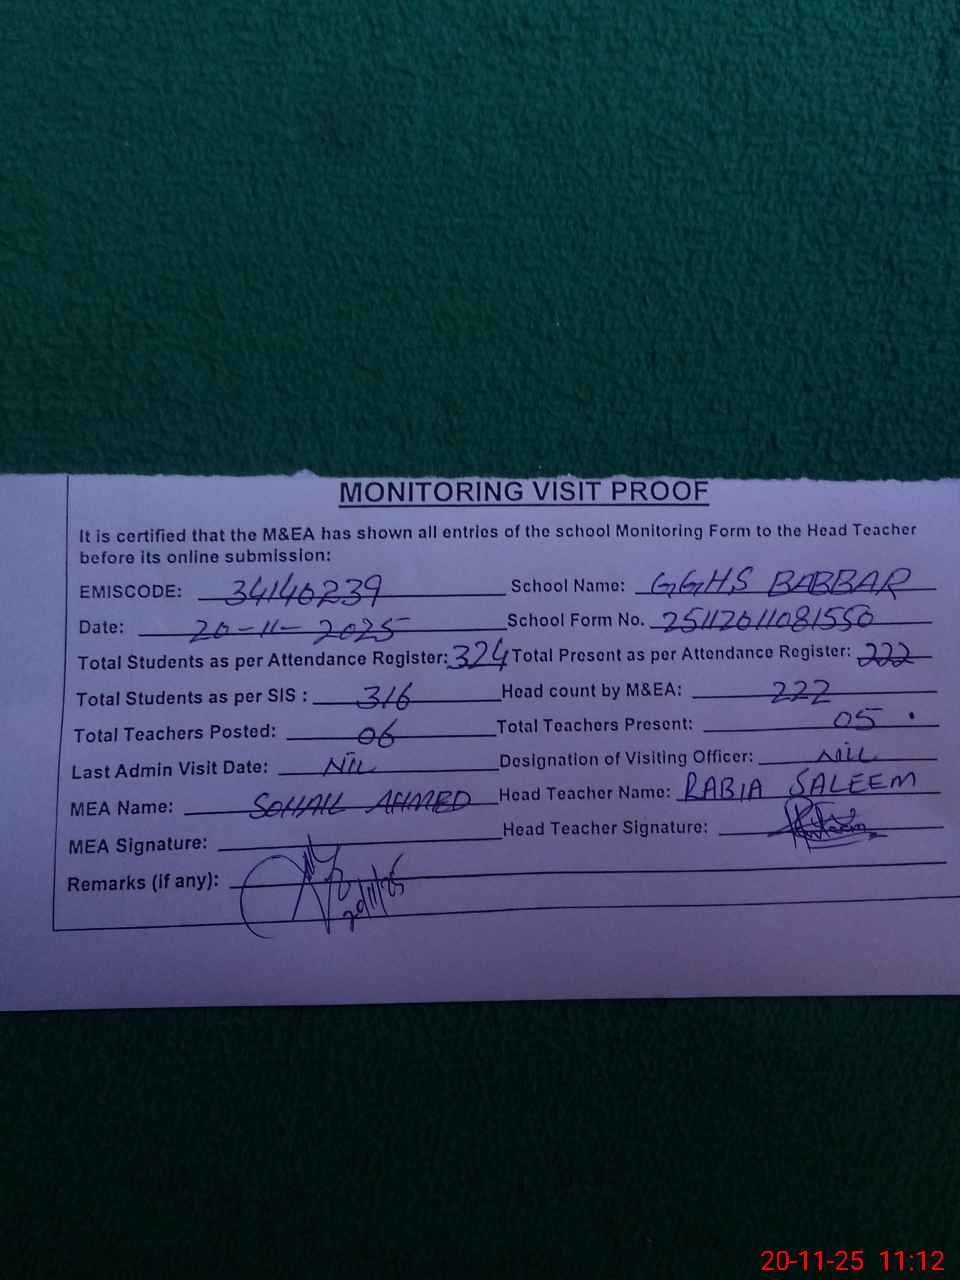 MONITORING VISIT PROOF
It is certified that the M&EA has shown all entries of the school Monitoring Form to the Head Teacher
before its online submission:
EMISCODE: 34140239 School Name: GGHS BABBAR
Date: 20-11-2025 School Form No. 25112011081550
Total Students as per Attendance Register: 324 Total Present as per Attendance Register: 222
Total Students as per SIS : 316 Head count by M&EA: 222
Total Teachers Posted: 06 Total Teachers Present: 05
Last Admin Visit Date: NIL Designation of Visiting Officer: NIL
MEA Name: SOHAIL AHMED Head Teacher Name: RABIA SALEEM
MEA Signature: Head Teacher Signature:
Remarks (if any): 20/11/25
20-11-25 11:12